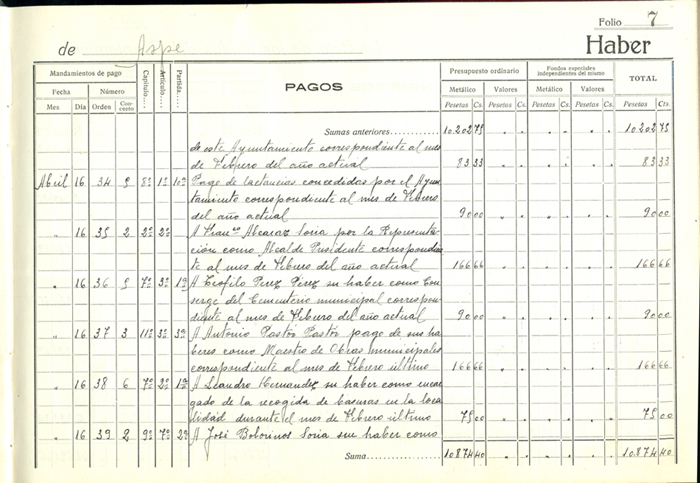 Folio 7
de Aspe Haber
Mandamientos de pago Capítulo.... Artículo.... Partida.... PAGOS Presupuesto ordinario Fondos especiales independientes del mismo TOTAL
Fecha Número Metálico Valores Metálico Valores
Mes Día Orden Concepto Pesetas Cs. Pesetas Cs. Pesetas Cs. Pesetas Cs. Pesetas Cts.
Sumas anteriores 10.202 75 10.202 75
de este Ayuntamiento correspondiente al mes
de Febrero del año actual 83 33 83 33
Abril 16 34 5 8º 1º 10º Pago de lactancias concedidas por el Ayun-
tamiento correspondiente al mes de Febrero
del año actual 90 00 90 00
" 16 35 2 2º 2º A Franco Alcaraz Soria por la Representa-
ción como Alcalde Presidente correspondien-
te al mes de Febrero del año actual 166 66 166 66
" 16 36 5 7º 3º 1º A Teofilo Perez Pérez su haber como Con-
serge del Cementerio municipal correspon-
diente al mes de Febrero del año actual 90 00 90 00
" 16 37 3 11º 3º 3º A Antonio Pastór Pastór pago de sus ha-
beres como Maestro de Obras municipales
correspondiente al mes de Febrero último 166 66 166 66
" 16 38 6 7º 2º 1º A Leandro Hernandez su haber como encar-
gado de la recogida de basuras en la loca-
lidad durante el mes de Febrero último 75 00 75 00
" 16 39 2 9º 7º 2º A José Soria su haber como
Suma 10.874 40 10.874 40